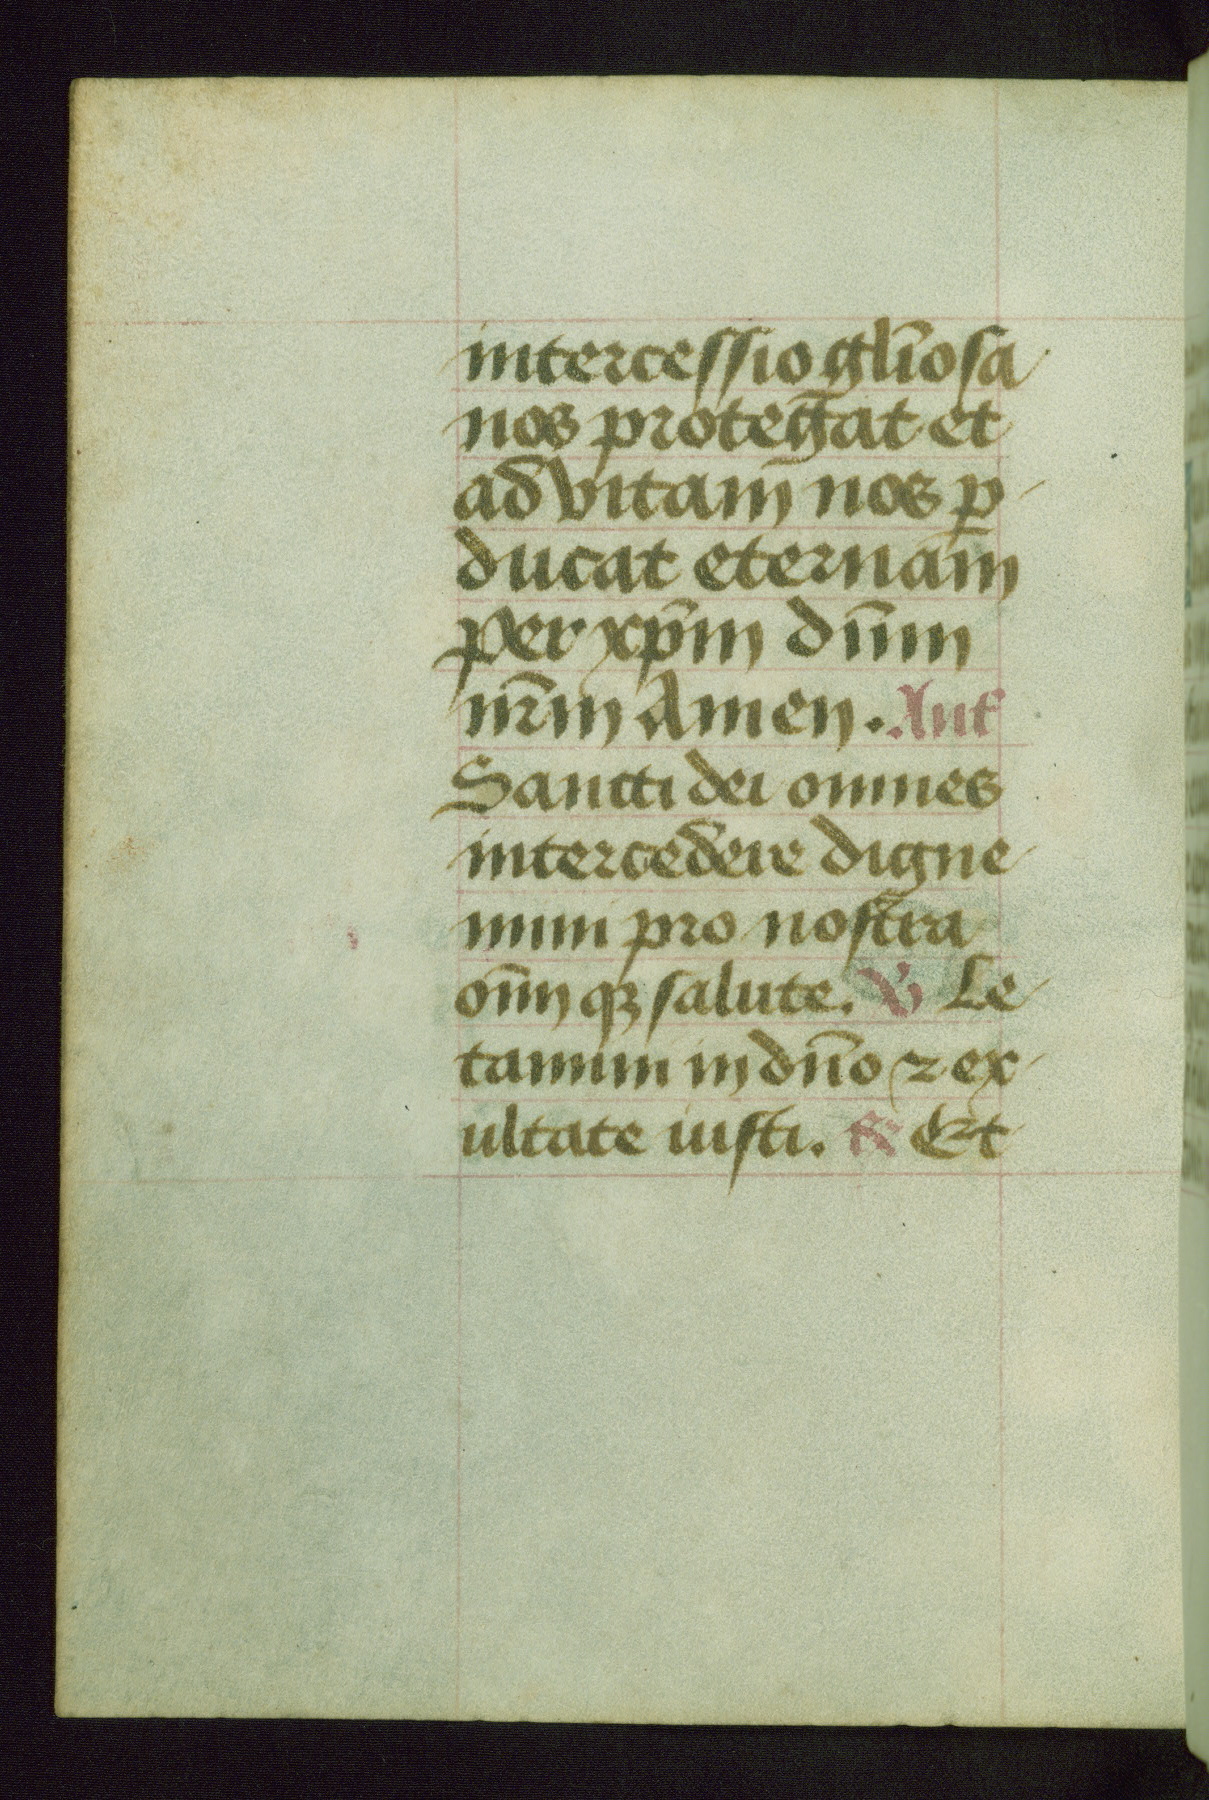 intercessio gl̅iosa
nos protegat et
ad vitam nos ꝑ
ducat eternam
per xp̅m dn̅m
nr̅m Amen. Ant̅
Sancti dei omnes
intercedere digne
mini pro nostra
om̅iqꝫ salute. ℣ Le
tamini in dn̅o ⁊ ex
ultate iusti. ℟ Et